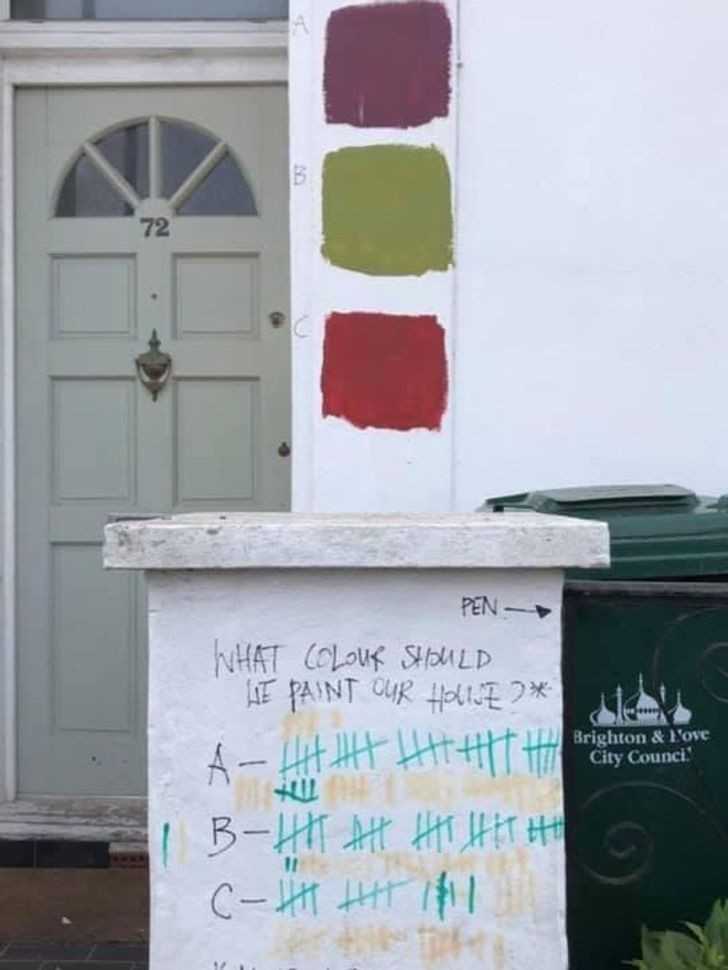 A
B
72
C
PEN →
WHAT COLOUR SHOULD
WE PAINT OUR HOUSE?*
A-
B-
C-
Brighton & Hove
City Council